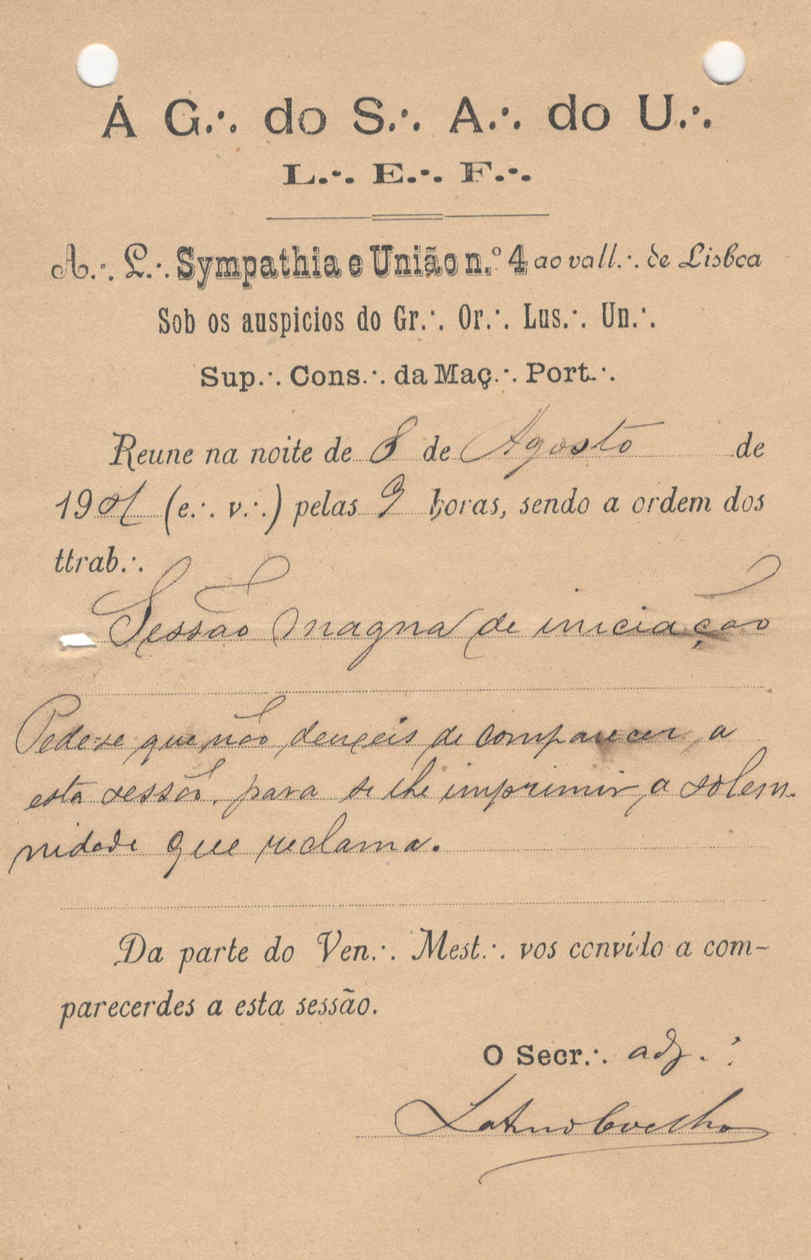 Á G.·. do S.·. A.·. do U.·.
L.·. E.·. F.·.
A.·. L.·. Sympathia e União n.º 4 ao vall.·. de Lisboa
Sob os auspicios do Gr.·. Or.·. Lus.·. Un.·.
Sup.·. Cons.·. da Maç.·. Port.·.
Reune na noite de 8 de Agosto de
1901 (e.·. v.·.) pelas 9 horas, sendo a ordem dos
ttrab.·.
Sessão magna de iniciação
Pede-se que não deixeis de comparecer a
esta sessão, para se lhe imprimir a solem-
nidade que reclama.
Da parte do Ven.·. Mest.·. vos convido a com-
parecerdes a esta sessão.
O Secr.·. adj.·.
Latino Coelho